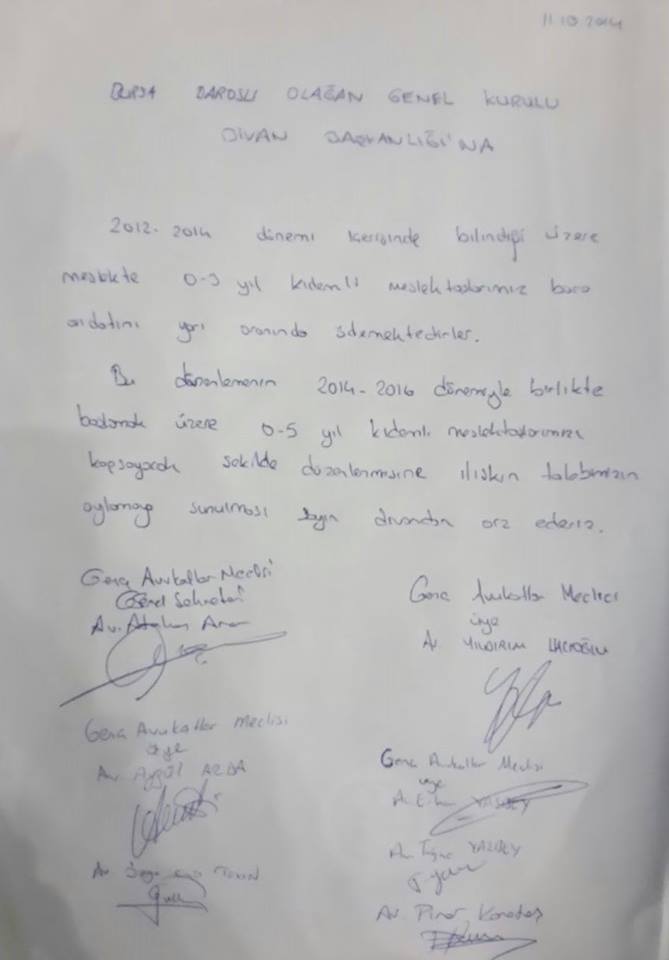 11.10.2014
BURSA BAROSU OLAĞAN GENEL KURULU
DİVAN BAŞKANLIĞI'NA
2012-2014 dönemi içerisinde bilindiği üzere
meslekte 0-3 yıl kıdemli meslektaşlarımız baro
aidatını yarı oranında ödemektedirler.
Bu düzenlemenin 2014-2016 dönemiyle birlikte
başlamak üzere 0-5 yıl kıdemli meslektaşlarımızı
kapsayacak şekilde düzenlenmesine ilişkin talebimizin
oylamaya sunulması sayın divandan arz ederiz.
Genç Avukatlar Meclisi
Genel Sekreteri
Av.
Genç Avukatlar Meclisi
üye
Av. YILDIRIM
Genç Avukatlar Meclisi
üye
Av. Aygül ARDA
Genç Avukatlar Meclisi
üye
Av.
Av. YAZIBEY
Av.
Av. Pınar Karadaş